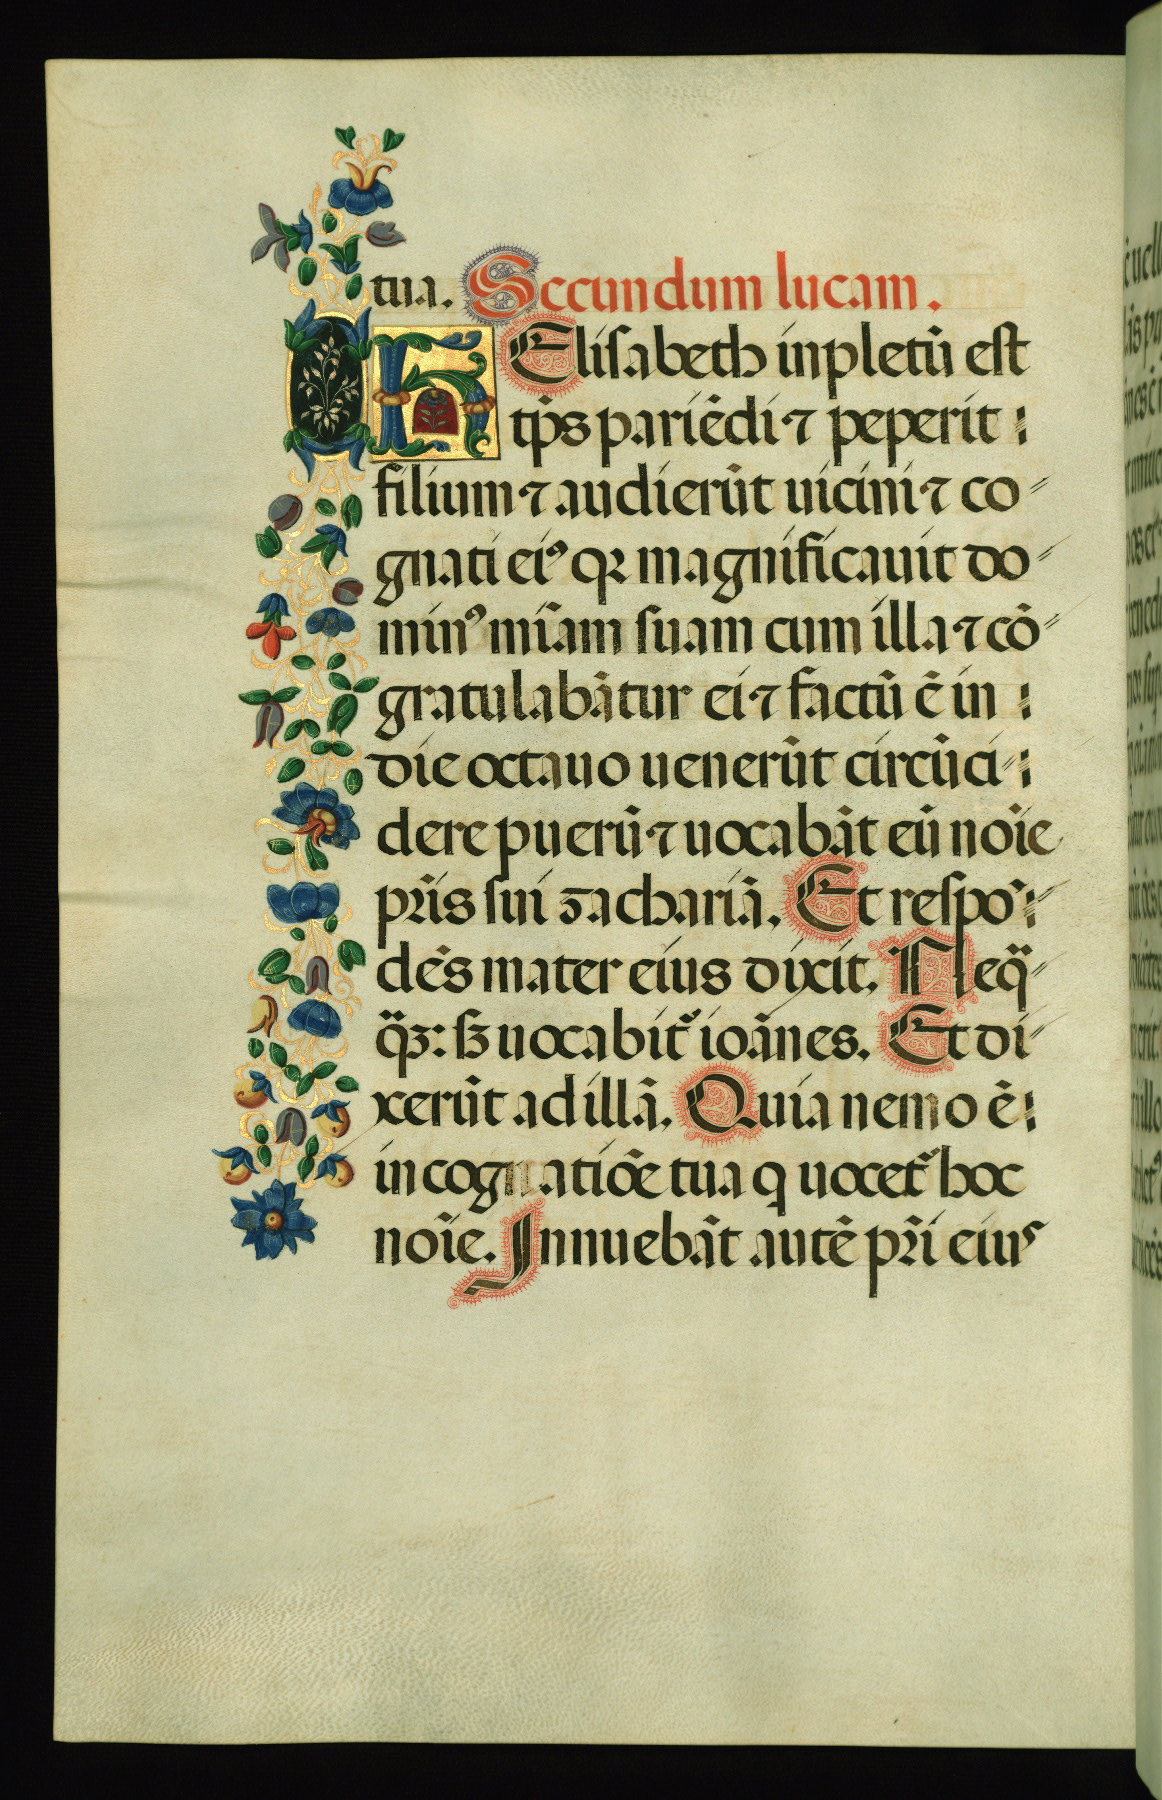 tua. Secundum lucam.
h Elisabeth inpletū est
tp̄s pariēdi ⁊ peperit
filium ⁊ audierūt uicini ⁊ co-
gnati ei⁹ qꝛ magnificauit do-
min⁹ mīam suam cum illa ⁊ cō-
gratulabātur ei ⁊ factū ē in
die octauo uenerūt circūci-
dere puerū ⁊ uocabāt eū noīe
pr̄is sui zachariā. Et respo-
dēs mater eius dixit. Neq̄-
q̄ꝫ: sꝫ uocabit᷑ ioānes. Et di-
xerūt ad illā. Quia nemo ē
in cognatiōe tua q uocet᷑ hoc
noīe. Innuebāt autē pr̄i eius